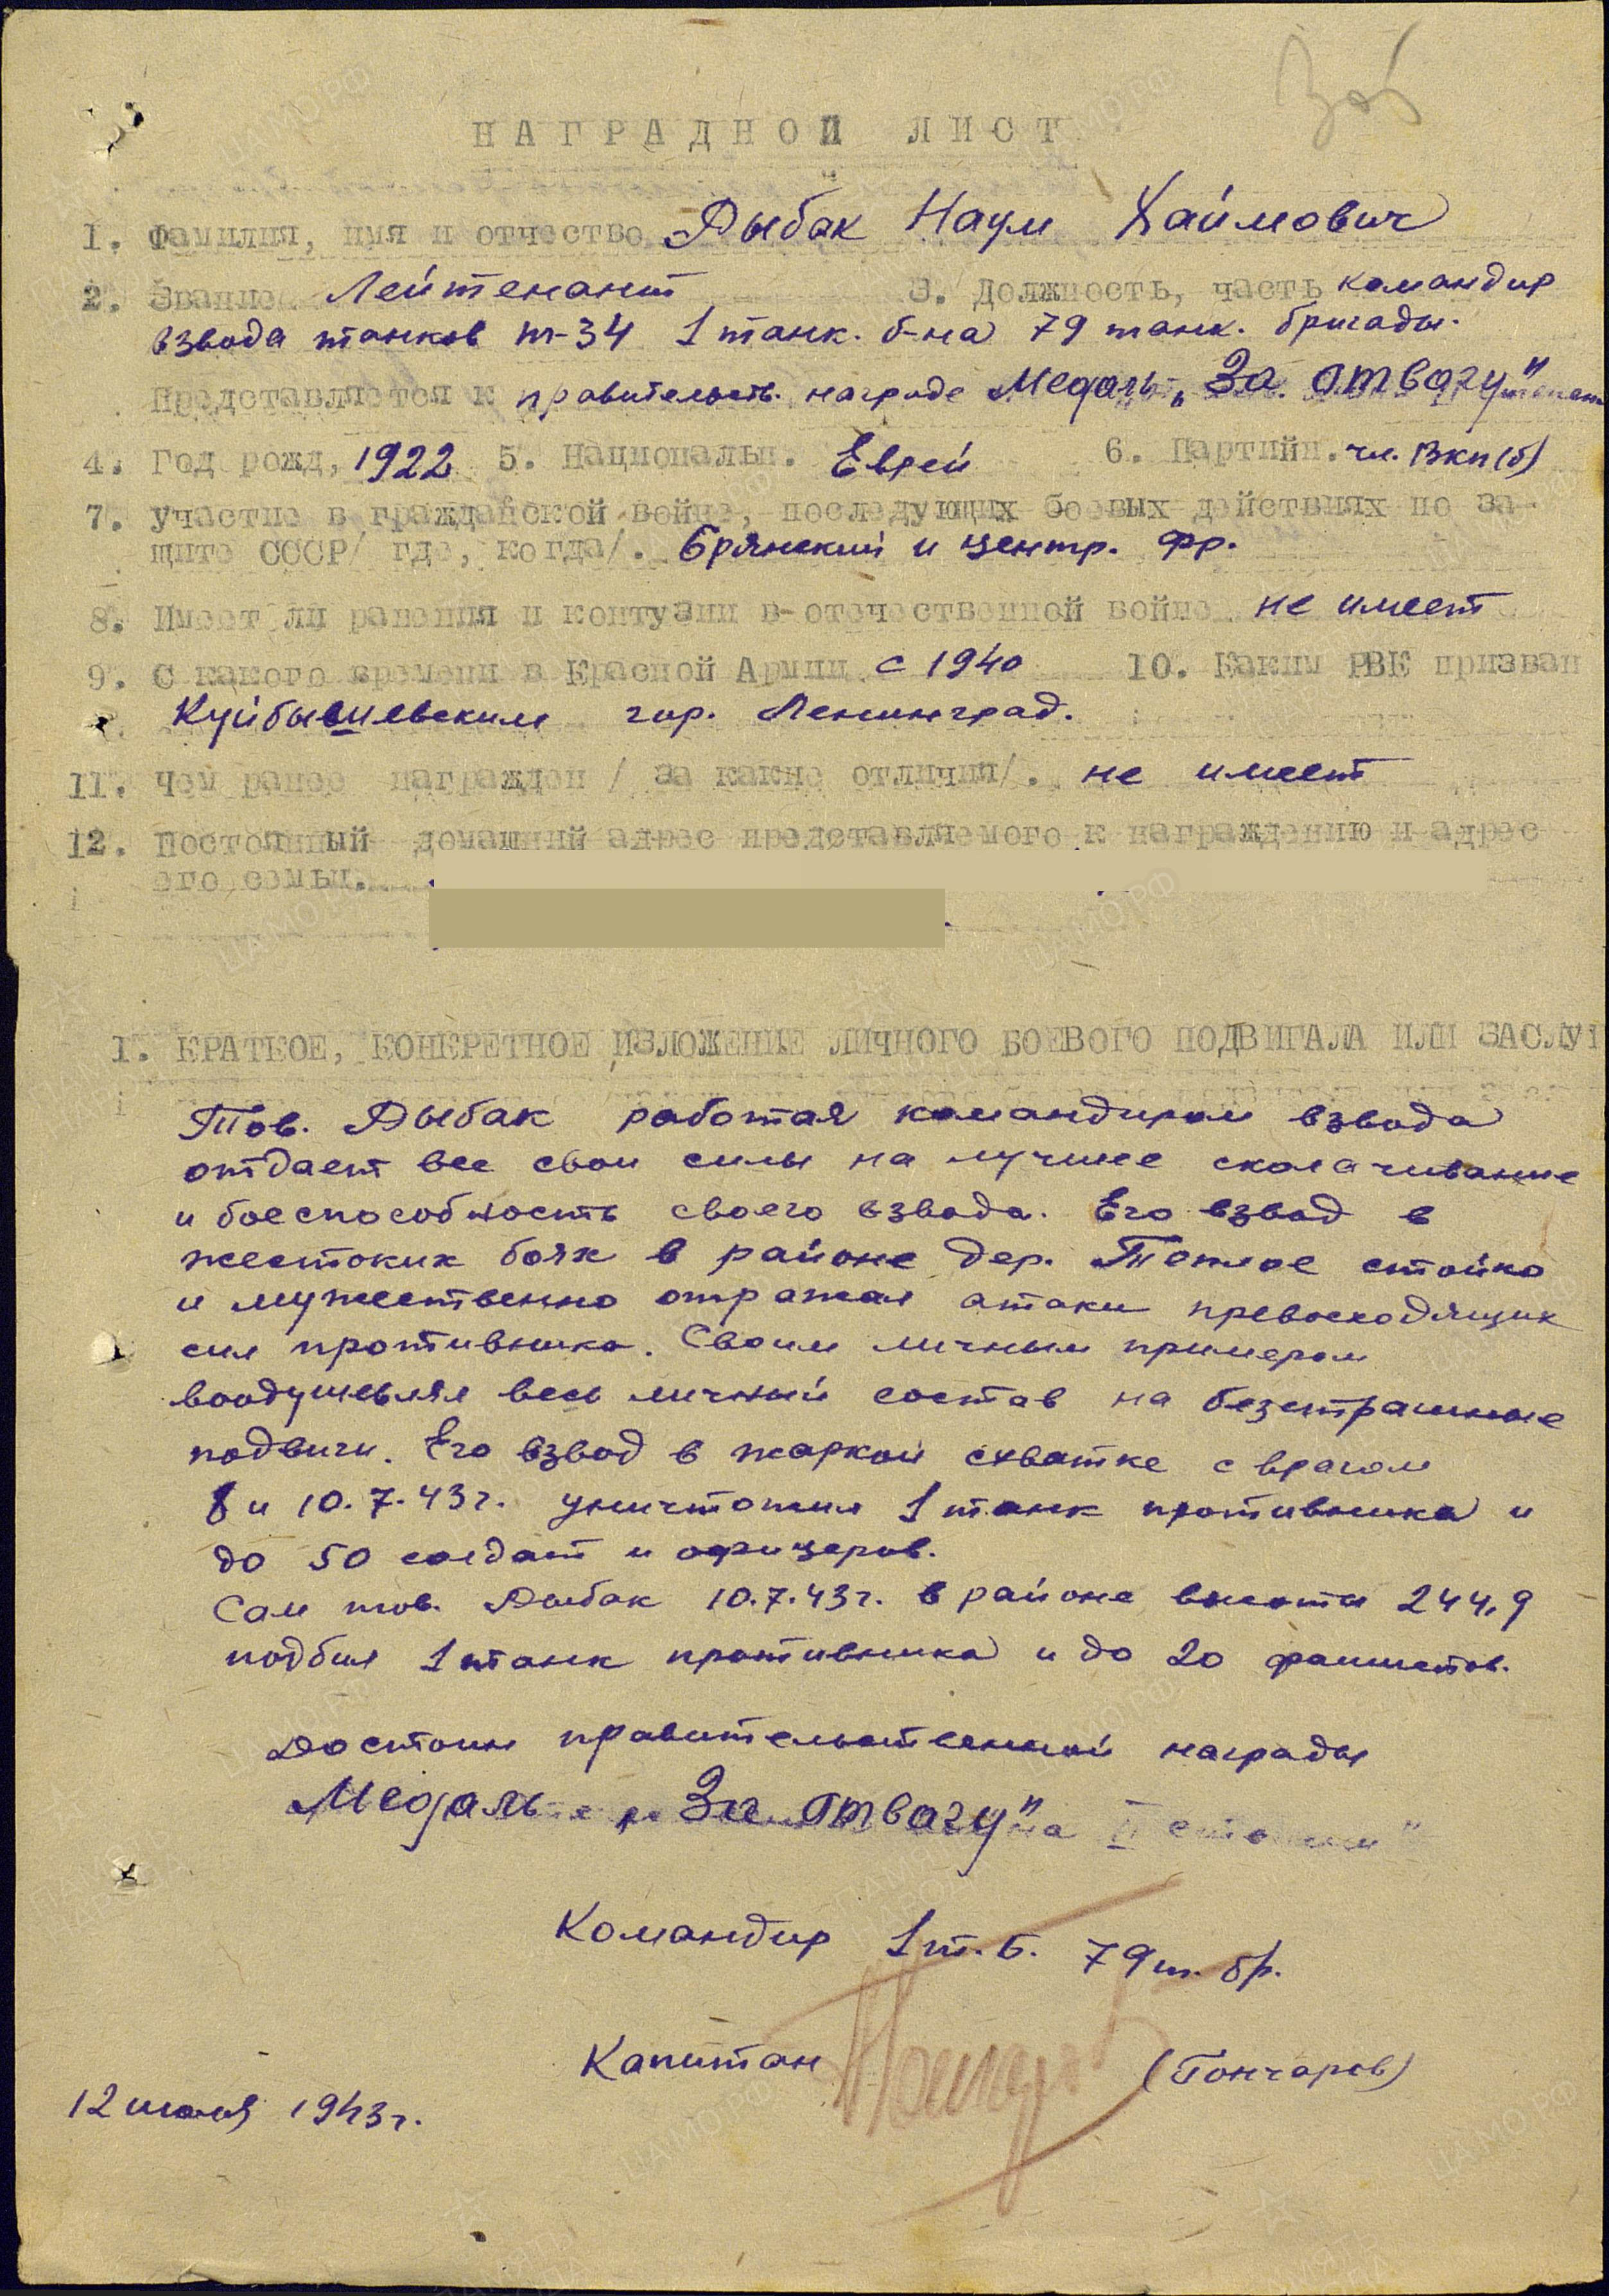 Заб
НАГРАДНОЙ ЛИСТ
1. Фамилия, имя и отчество Рыбак Наум Хаймович
2. Звание Лейтенант 3. Должность, часть командир
взвода танков т-34 1 танк. б-на 79 танк. бригады.
Представляется к правительств. награде Медаль „За отвагу"
4. Год рожд, 1922 5. Национальн. Еврей 6. Партийн. чл. ВКП(б)
7. участие в гражданской войне, последующих боевых действиях по за-
щите СССР/ где, когда/. Брянский и центр. фр.
8. Имеет ли ранения и контузии в отечественной войне не имеет
9. С какого времени в Красной Армии с 1940 10. Каким РВК призван
Куйбышевским гор. Ленинград.
11. Чем ранее награжден / за какие отличия/. не имеет
12. Постоянный домашний адрес представляемого к награждению и адрес
его семьи.
1. КРАТКОЕ, КОНКРЕТНОЕ ИЗЛОЖЕНИЕ ЛИЧНОГО БОЕВОГО ПОДВИГАЛА ИЛИ ЗАСЛУГ
Тов. Рыбак работая командиром взвода
отдает все свои силы на лучшее сколачивание
и боеспособность своего взвода. Его взвод в
жестоких боях в районе дер. Теплое стойко
и мужественно отражал атаки превосходящих
сил противника. Своим личным примером
воодушевлял весь личный состав на безстрашные
подвиги. Его взвод в жаркой схватке с врагом
8 и 10.7.43г. уничтожил 1 танк противника и
до 50 солдат и офицеров.
Сам тов. Рыбак 10.7.43г. в районе высоты 244,9
подбил 1 танк противника и до 20 фашистов.
Достоин правительственной награды
Медаль „За отвагу" II степени"
Командир 1 т.б. 79 т. бр.
Капитан (Гончаров)
12 июля 1943г.